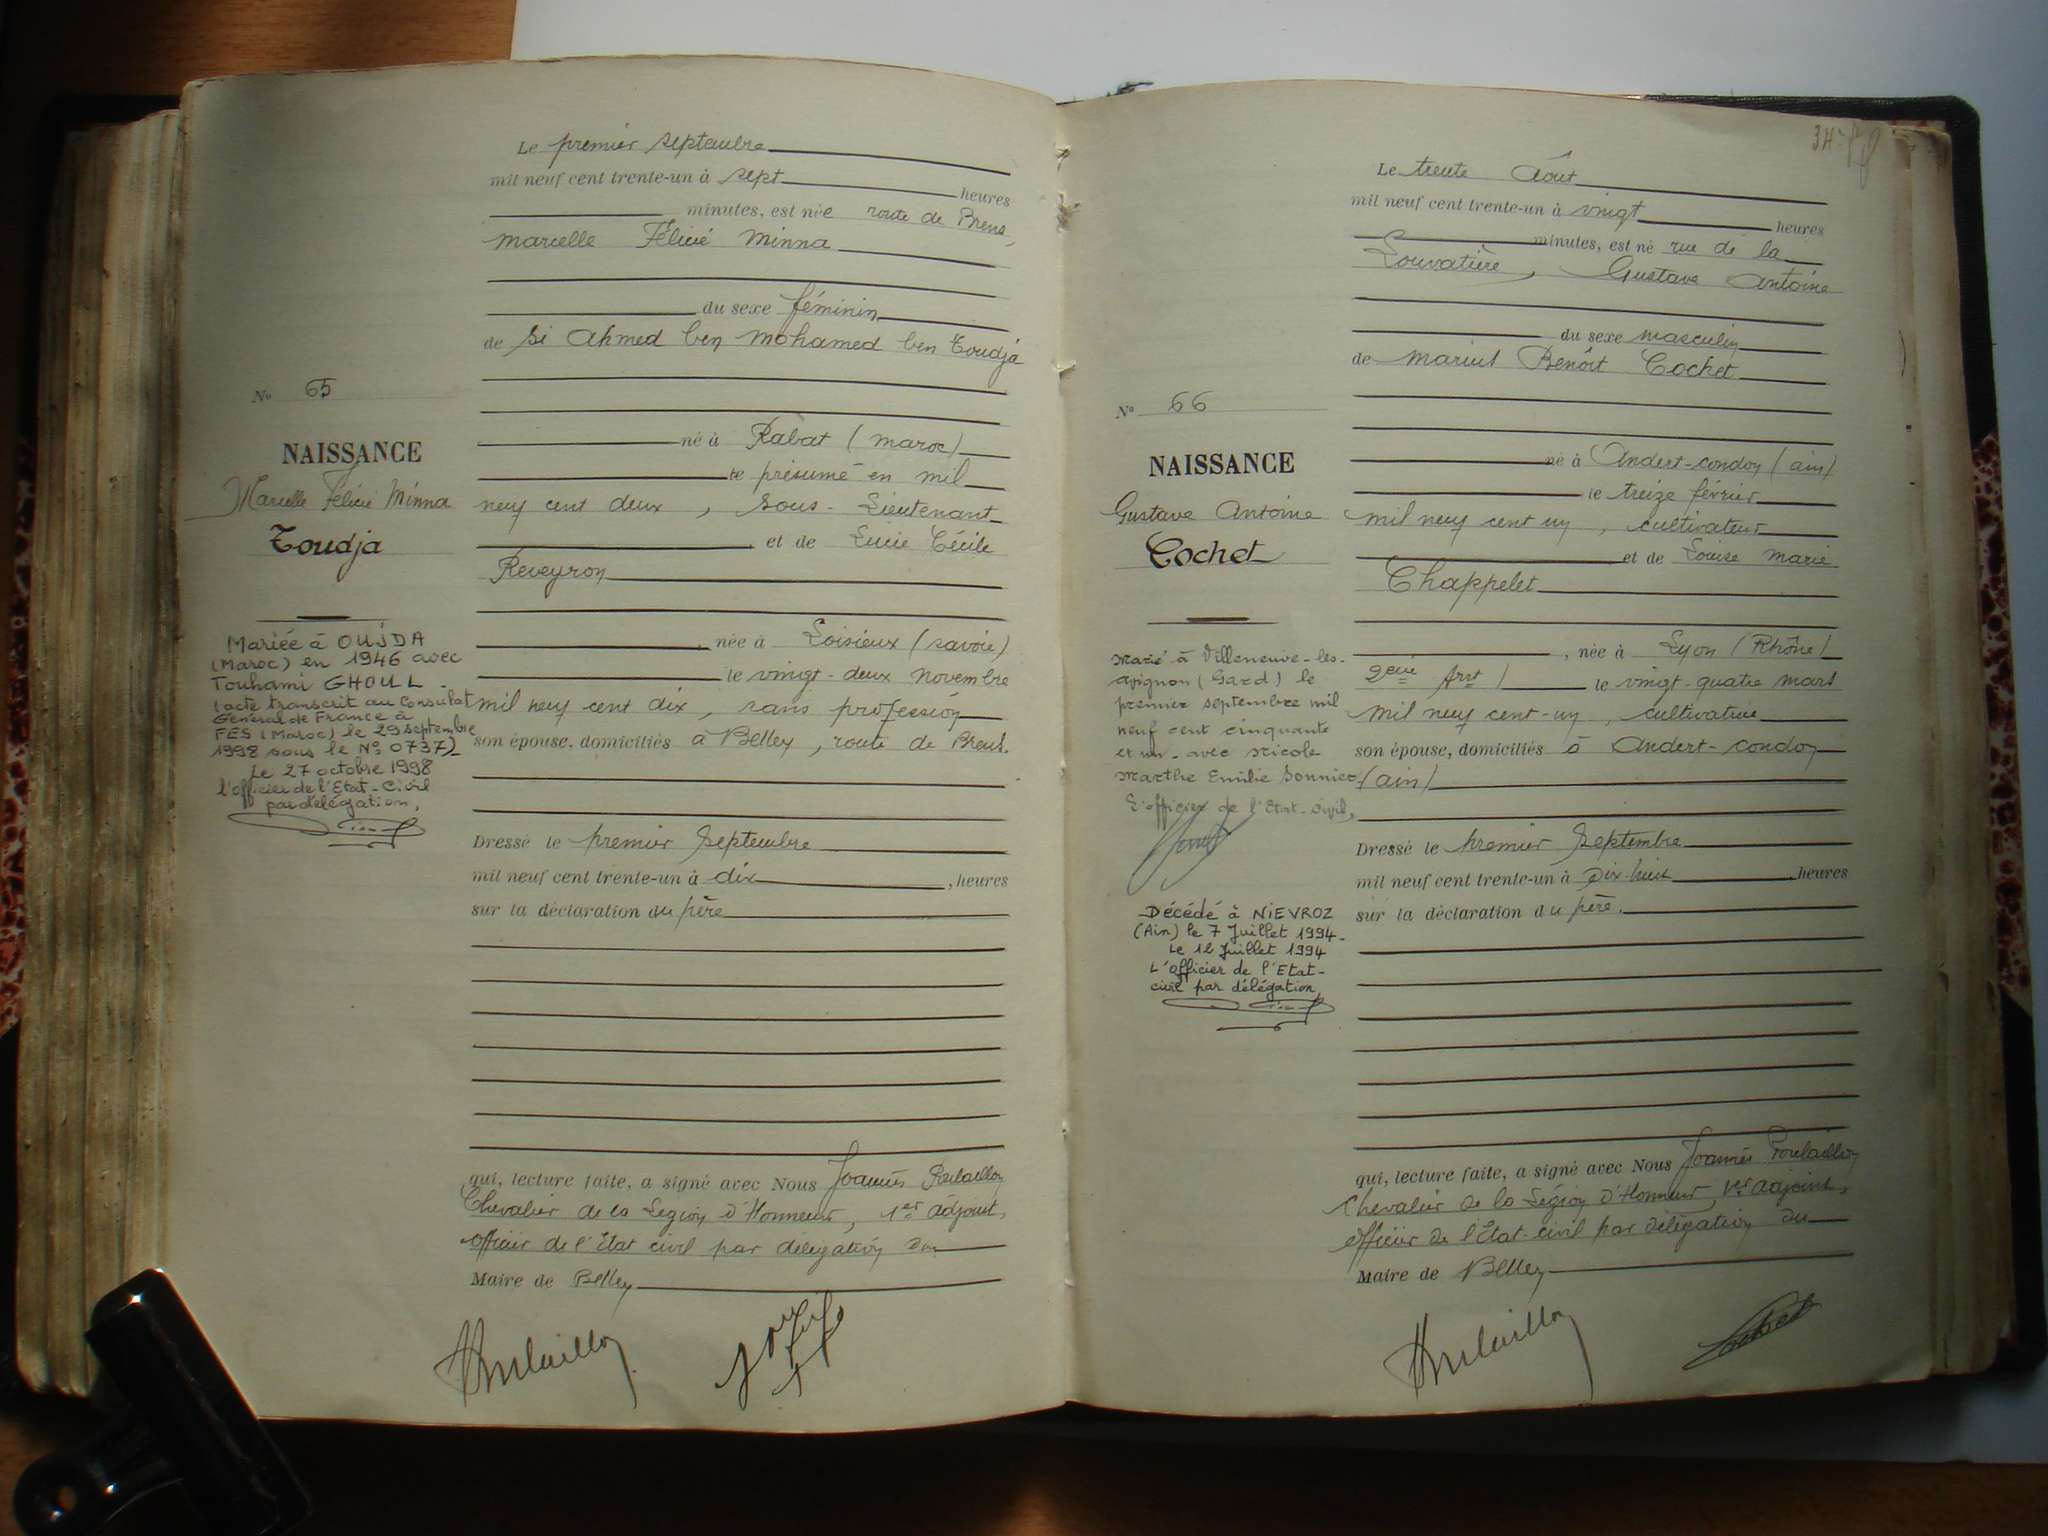 Le premier septembre
mil neuf cent trente-un à sept heures
minutes, est née route de Brens,
Marcelle Félicié Minna
du sexe féminin
de Si Ahmed ben Mohamed ben Toudja
né à Rabat (Maroc)
le présumé en mil
neuf cent deux, Sous-Lieutenant
et de Lucie Cécile
Reveyron
née à Loisieux (Savoie)
le vingt-deux novembre
mil neuf cent dix, sans profession
son épouse, domiciliés à Belley, route de Brens.
Dressé le premier Septembre
mil neuf cent trente-un à dix, heures
sur la déclaration du père
qui, lecture faite, a signé avec Nous Joannès Poulaillon
Chevalier de la Légion d'Honneur, 1er adjoint,
officier de l'Etat civil par délégation du
Maire de Belley
No 65
NAISSANCE
Marcelle Félicié Minna
Toudja
Mariée à OUJDA
(Maroc) en 1946 avec
Touhami GHOUL
(acte transcrit au Consulat
Général de France à
FES (Maroc) le 29 septembre
1998 sous le No 0737)_
Le 27 octobre 1998
l'officier de l'Etat-Civil
par délégation,
Poulaillon
34
Le trente Août
mil neuf cent trente-un à vingt heures
minutes, est né rue de la
Louvatière, Gustave Antoine
du sexe masculin
de Marius Benoît Cochet
né à Andert-Condon (Ain)
le treize février
mil neuf cent un, cultivateur
et de Louise Marie
Chappelet
, née à Lyon (Rhône)
2eme Arrt le vingt-quatre mars
mil neuf cent-un, cultivatrice
son épouse, domiciliés à Andert-Condon
(Ain)
Dressé le premier Septembre
mil neuf cent trente-un à Dix-huit, heures
sur la déclaration du père.
qui, lecture faite, a signé avec Nous Joannès Poulaillon
Chevalier de la Légion d'Honneur, 1er adjoint,
officier de l'Etat-civil par délégation du
Maire de Belley
No 66
NAISSANCE
Gustave Antoine
Cochet
Marié à Villeneuve-les-
Avignon (Gard) le
premier septembre mil
neuf cent cinquante
et un - avec Nicole
Marthe Emilie Sonnier
L'officier de l'Etat-civil,
Décédé à NIEVROZ
(Ain) le 7 Juillet 1994-
Le 12 Juillet 1994
L'officier de l'Etat-
civil par délégation,
Poulaillon
Cochet